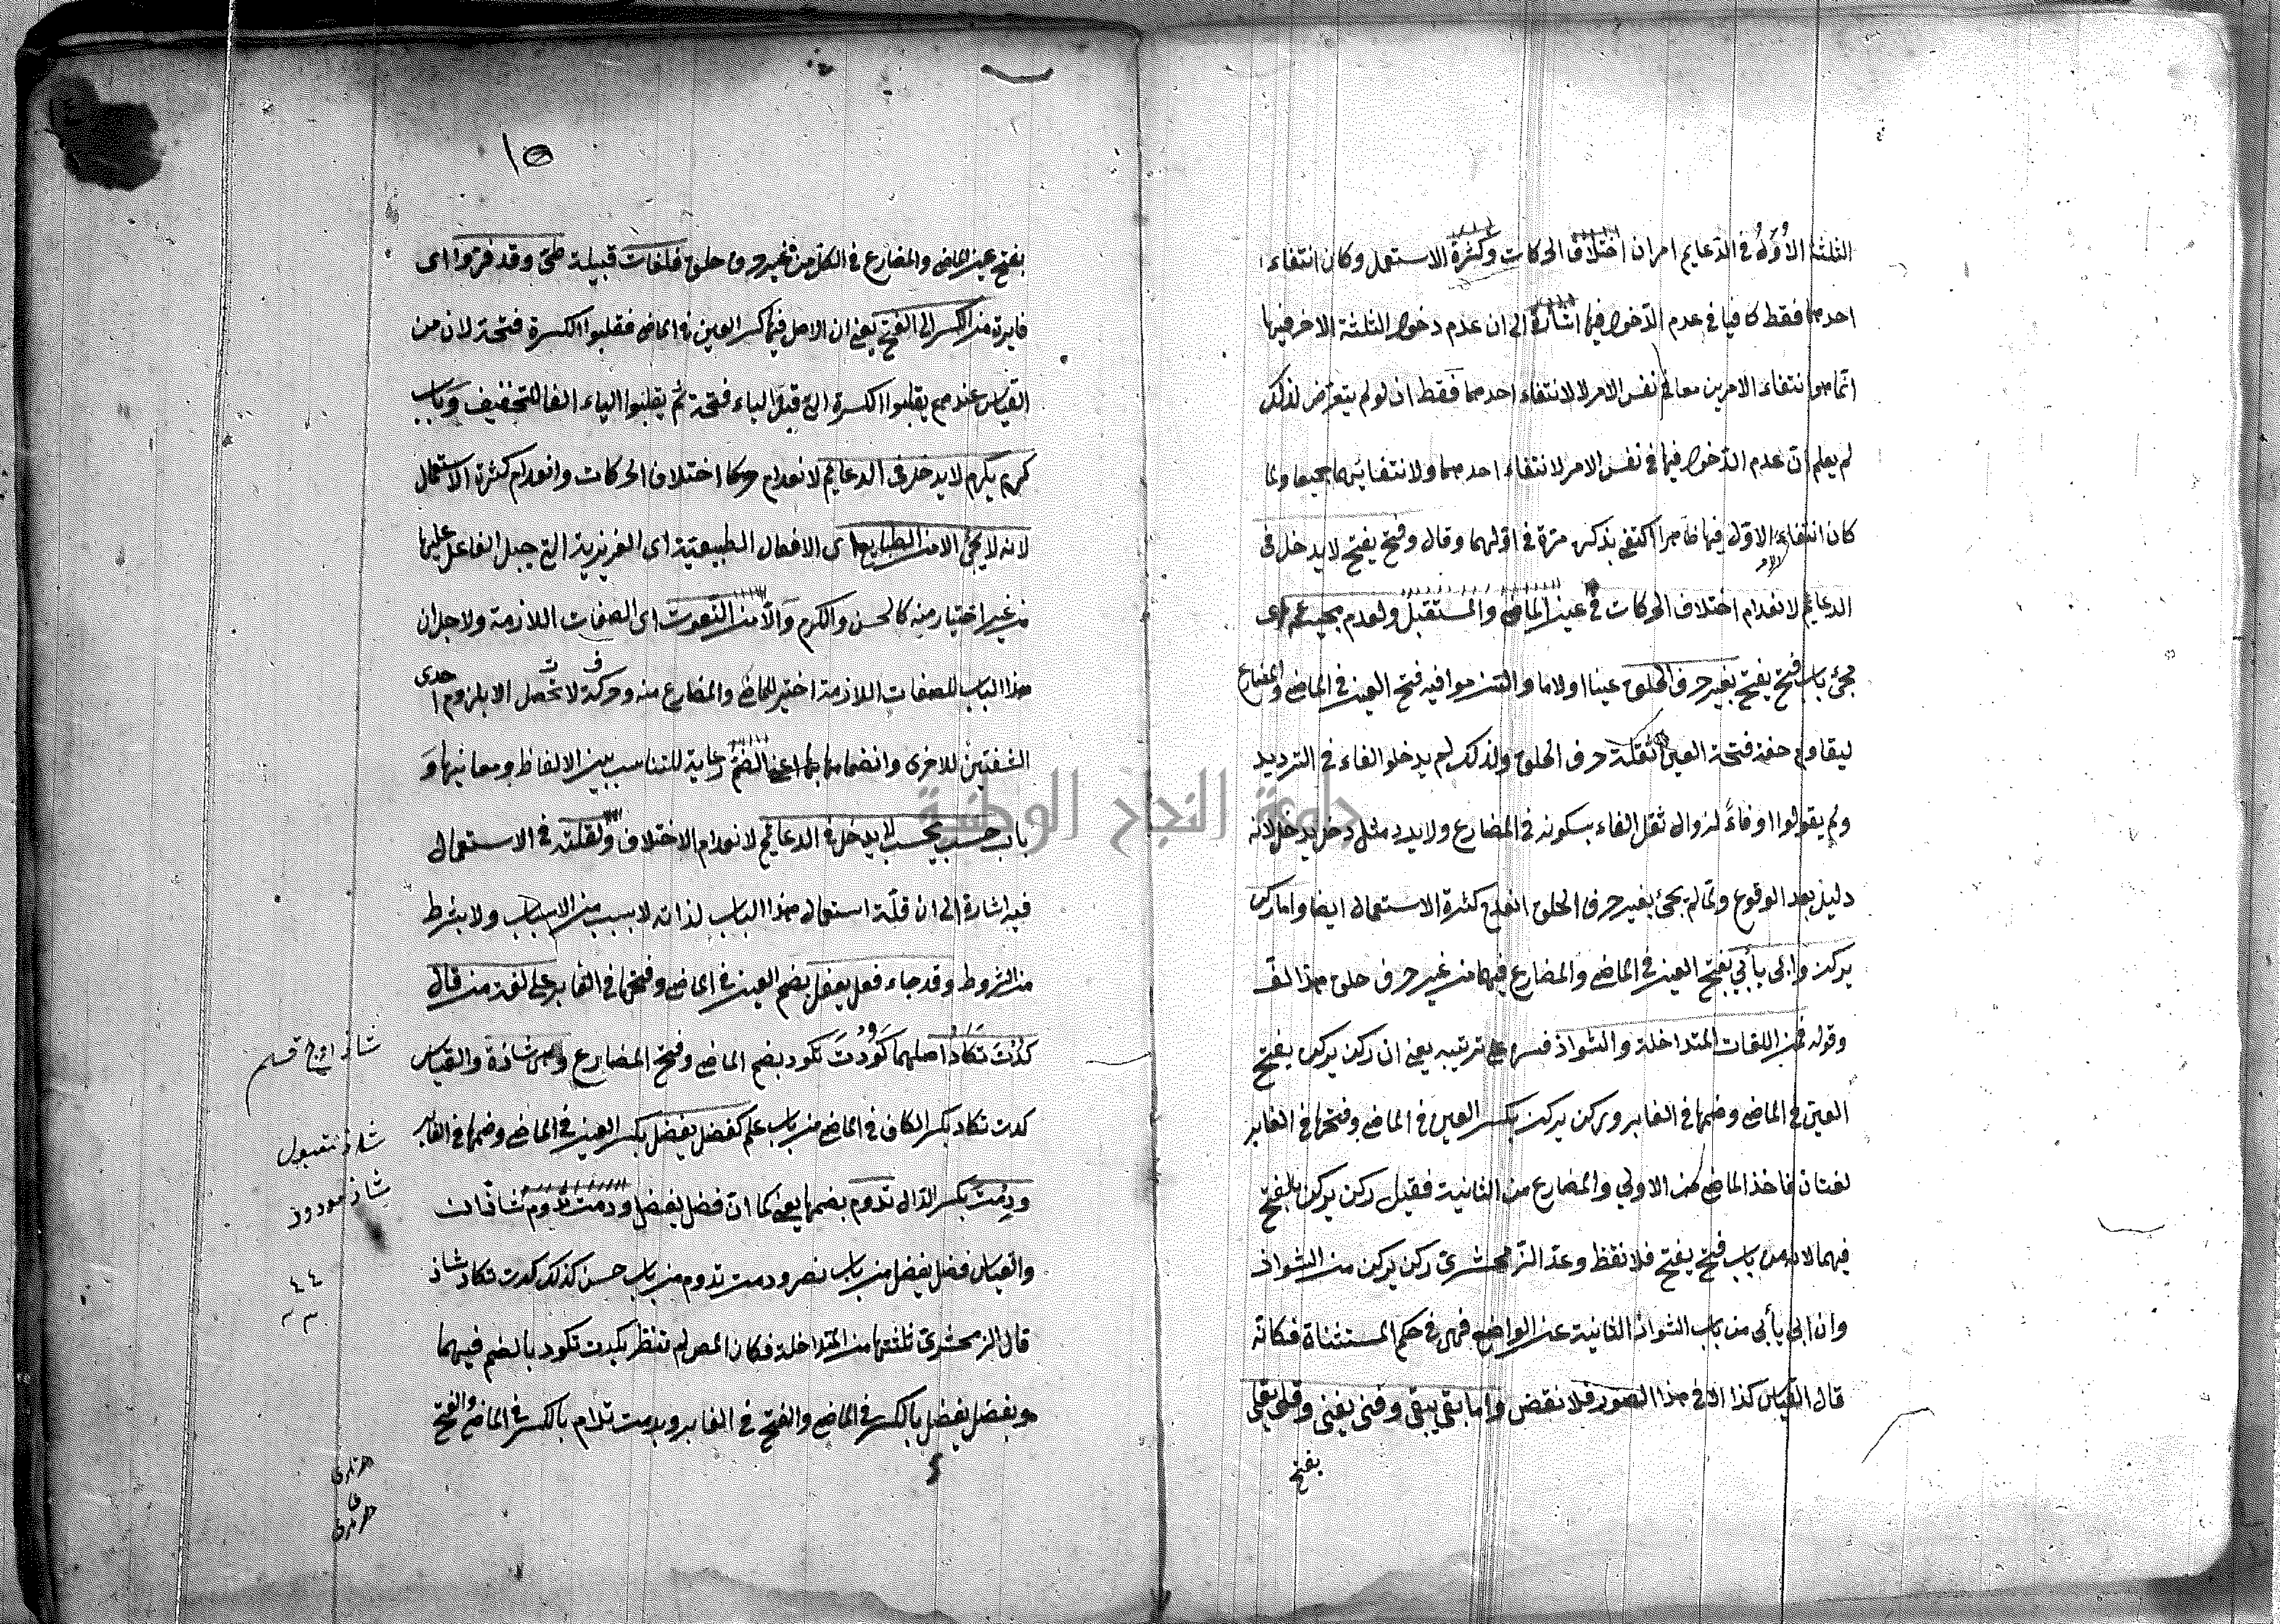 الثلثة الأول في الدعايم امران اختلاف الحركات وكثرة الاستعمال وكان انتفاء
احدهما فقط كافيا في عدم الدخول فيها اشارة الى ان عدم دخول الثلثة الاخر فيها
انما هو انتفاء الامرين معا في نفس الامر لا لانتفاء احدهما فقط اذ لو لم يتعرض لذلك
لم يعلم ان عدم الدخول فيها في نفس الامر لانتفاء احدهما ولانتفائهما جميعا ولما
كان انتفاء الاول فيها ظاهرا اكتفى بذكره مرة في اولهما وقال وفتح يفتح لا يدخل في
الدعائم لانعدام اختلاف الحركات في عين الماضي والمستقبل ولعدم مجيئه اى
مجئ باب فتح يفتح بغير حرف الحلق عينا او لاما والتزموا فيه فتح العين في الماضي والمضارع
ليقاوم خفة فتحة العين ثقلة حرف الحلق ولذلك لم يدخلوا الفاء في الترديد
ولم يقولوا او فاء لزوال ثقل الفاء بسكونه في المضارع ولا يرد مثل دخل يدخل لانه
دليل بعد الوقوع ولما لم يجئ بغير حرف الحلق انعدم كثرة الاستعمال ايضا واما ركن
يركن وابى يأبى بفتح العين في الماضي والمضارع فيهما من غير حرف حلق هذا لف
وقوله فمن اللغات المتداخلة والشواذ فسره على ترتيبه يعنى ان ركن يركن بفتح
العين في الماضي وضمها في الغابر وركن يركن بكسر العين في الماضي وفتحها في الغابر
لغتان فاخذ الماضي من الاولى والمضارع من الثانية فقيل ركن يركن بالفتح
فيهما لا انه من باب فتح يفتح فلا نقض وعد الزمخشرى ركن يركن من الشواذ
وان ابى يأبى من باب الشواذ الثانية عن الواضع فهى في حكم المستثناة فكانه
قال القياس كذا الا في هذا الصور فلا نقض واما بقى يبقى وفنى يفنى وقلى يقلى
بفتح
١٥
بفتح عين الماضي والمضارع في الكل من غير حرف حلق فلغات قبيلة طى وقد فروا اى
فارين من الكسر الى الفتح يعنى ان الاصل فيها كسر العين في الماضي فقلبوا الكسرة فتحة لان من
القياس عندهم يقلبوا الكسرة التى قبل الياء فتحة ثم يقلبوا الياء الفا للتخفيف وباب
كرم يكرم لا يدخل في الدعائم لانعدام اختلاف الحركات وانعدام كثرة الاستعمال
لانه لا يجئ الا من الطبايع اى الافعال الطبيعية اى الغريزية التى جبل الفاعل عليها
من غير اختيار منه كالحسن والكرم والا من النعوت اى الصفات اللازمة ولاجل ان
هذا الباب للصفات اللازمة اختير للماضي والمضارع منه حركة لا تحصل الا بلزوم احدى
الشفتين للاخرى وانضمامها بها اعنى الضم رعاية للتناسب بين الالفاظ ومعانيها و
باب حسب يحسب لا يدخل في الدعائم لانعدام الاختلاف ولقلته في الاستعمال
فيه اشارة الى ان قلة استعمال هذا الباب لذاته لا بسبب من الاسباب ولا بشرط
من الشروط وقد جاء فعل يفعل بضم العين في الماضي وفتحها في الغابر على لغة من قال
كدت تكاد اصلهما كودت تكود بضم الماضي وفتح المضارع وهى شاذة والقياس
كدت تكاد بكسر الكاف في الماضي من باب علم كفضل يفضل بكسر العين في الماضي وضمها في الغابر
ودمت بكسر الدال تدوم بضمها يعنى كما ان فضل يفضل ودمت تدوم شاذان
والقياس فضل يفضل من باب نصر ودمت تدوم من باب حسن كذلك كدت تكاد شاذ
قال الزمخشرى ثلثتها من المتداخلة فكان المص لم تنظر بكدت تكود بالضم فيهما
وبفضل يفضل بالكسر في الماضي والفتح في الغابر وبدمت تدام بالكسر في الماضي والفتح
شاذ
شاذ مقبول
شاذ مردود
جامعة النجاح الوطنية